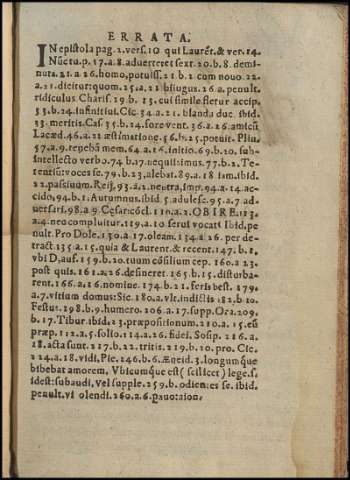 ERRATA.
IN epistola pag. 2. vers. 10 qui Laurẽt. & ver. 14.
Nũcto. p. 17. a. 8. aduerteret sext. 20. b. 8. demi-
nuta. 21. a. 26. homo, potuiss. 21. b. 2 com nouo 22.
a. 21. dicitur: quom. 25. a. 21 biiugus. 26. a. penult.
ridiculus Charis. 29 b. 15. cui simile. fletur accip.
53. b. 24. infinitiui. Cic. 34. a. 21. blanda duc. ibid.
33. meritis. Cas. 35. b. 24. fore vent. 36. a. 26. amicũ
Lacæd. 46. a. 21 æstimatione. 56. b. 25. potuit. Plin.
57. a. 9. rep̃eb̃a mem. 64. a. 16. initio. 69. b. 20. sub-
intellecto verbo. 74 b. 17. nequissimus. 77. b. 2. Te-
rentii: voces se. 79. b. 23. alebat. 89. a. 18 iam. ibid.
22. passiuum. Reij. 93. a. 2. neutra, Imp. 94. a. 14. ac-
cido. 94. b. 1. Autumnus. ibid. 5. adulesc. 95. a. 7 ad
uersari. 98. a 9. Cesari: ocul. 110. a. 2. OBIRE. 113.
a. 4. neo compluitur. 119. a. 10 serui vocati ibid. pe-
nult. Pro Dole. 130. a. 17 oleam. 134. a 26. per de-
tract 135. a 15. quia & Laurent. & recent. 147. b. 1.
vbi D, auf. 159. b. 20. tuum cõsilium cep. 160. a 23.
post quis. 161. a. 26. desineret. 165. b. 15. disturba-
rent. 166. a. 16. nomine. 174. b. 21. feris best. 179.
a. 7. vitium domus: Sic. 180. a. vlt. indictis 182. b. 10.
Festus. 198. b. 9. humero. 206. a. 17. supp. Ora 209.
b. 17. Tibur. ibid. 23. præpositionum. 210. a. 15. eũ
præp. 112. a. 5. solito. 114. a. 26. fidei, Sosip. 216. a.
18. acta sunt. 217. b. 22. tritis. 219. b. 10. pro. Cic.
224. a. 18. vidi, Pie. 246. b. 6. Æneid. 3. longumq́ue
bibebat amorem, Vbicumque est ( scilicet ) lege. s.
idest: subaudi, vel supple. 259. b. odien: es se. ibid.
penult. vi olendi. 260. a. 6.